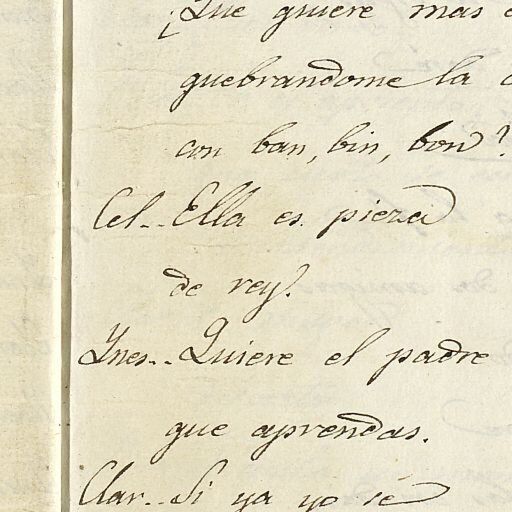 ¿Que quiere mas
quebrandome la
con ban, bin, bon?
Cel.. Ella es pieza
de rey.
Ynes.. Quiere el padre
que aprendas.
Clar.. Si ya yo sé